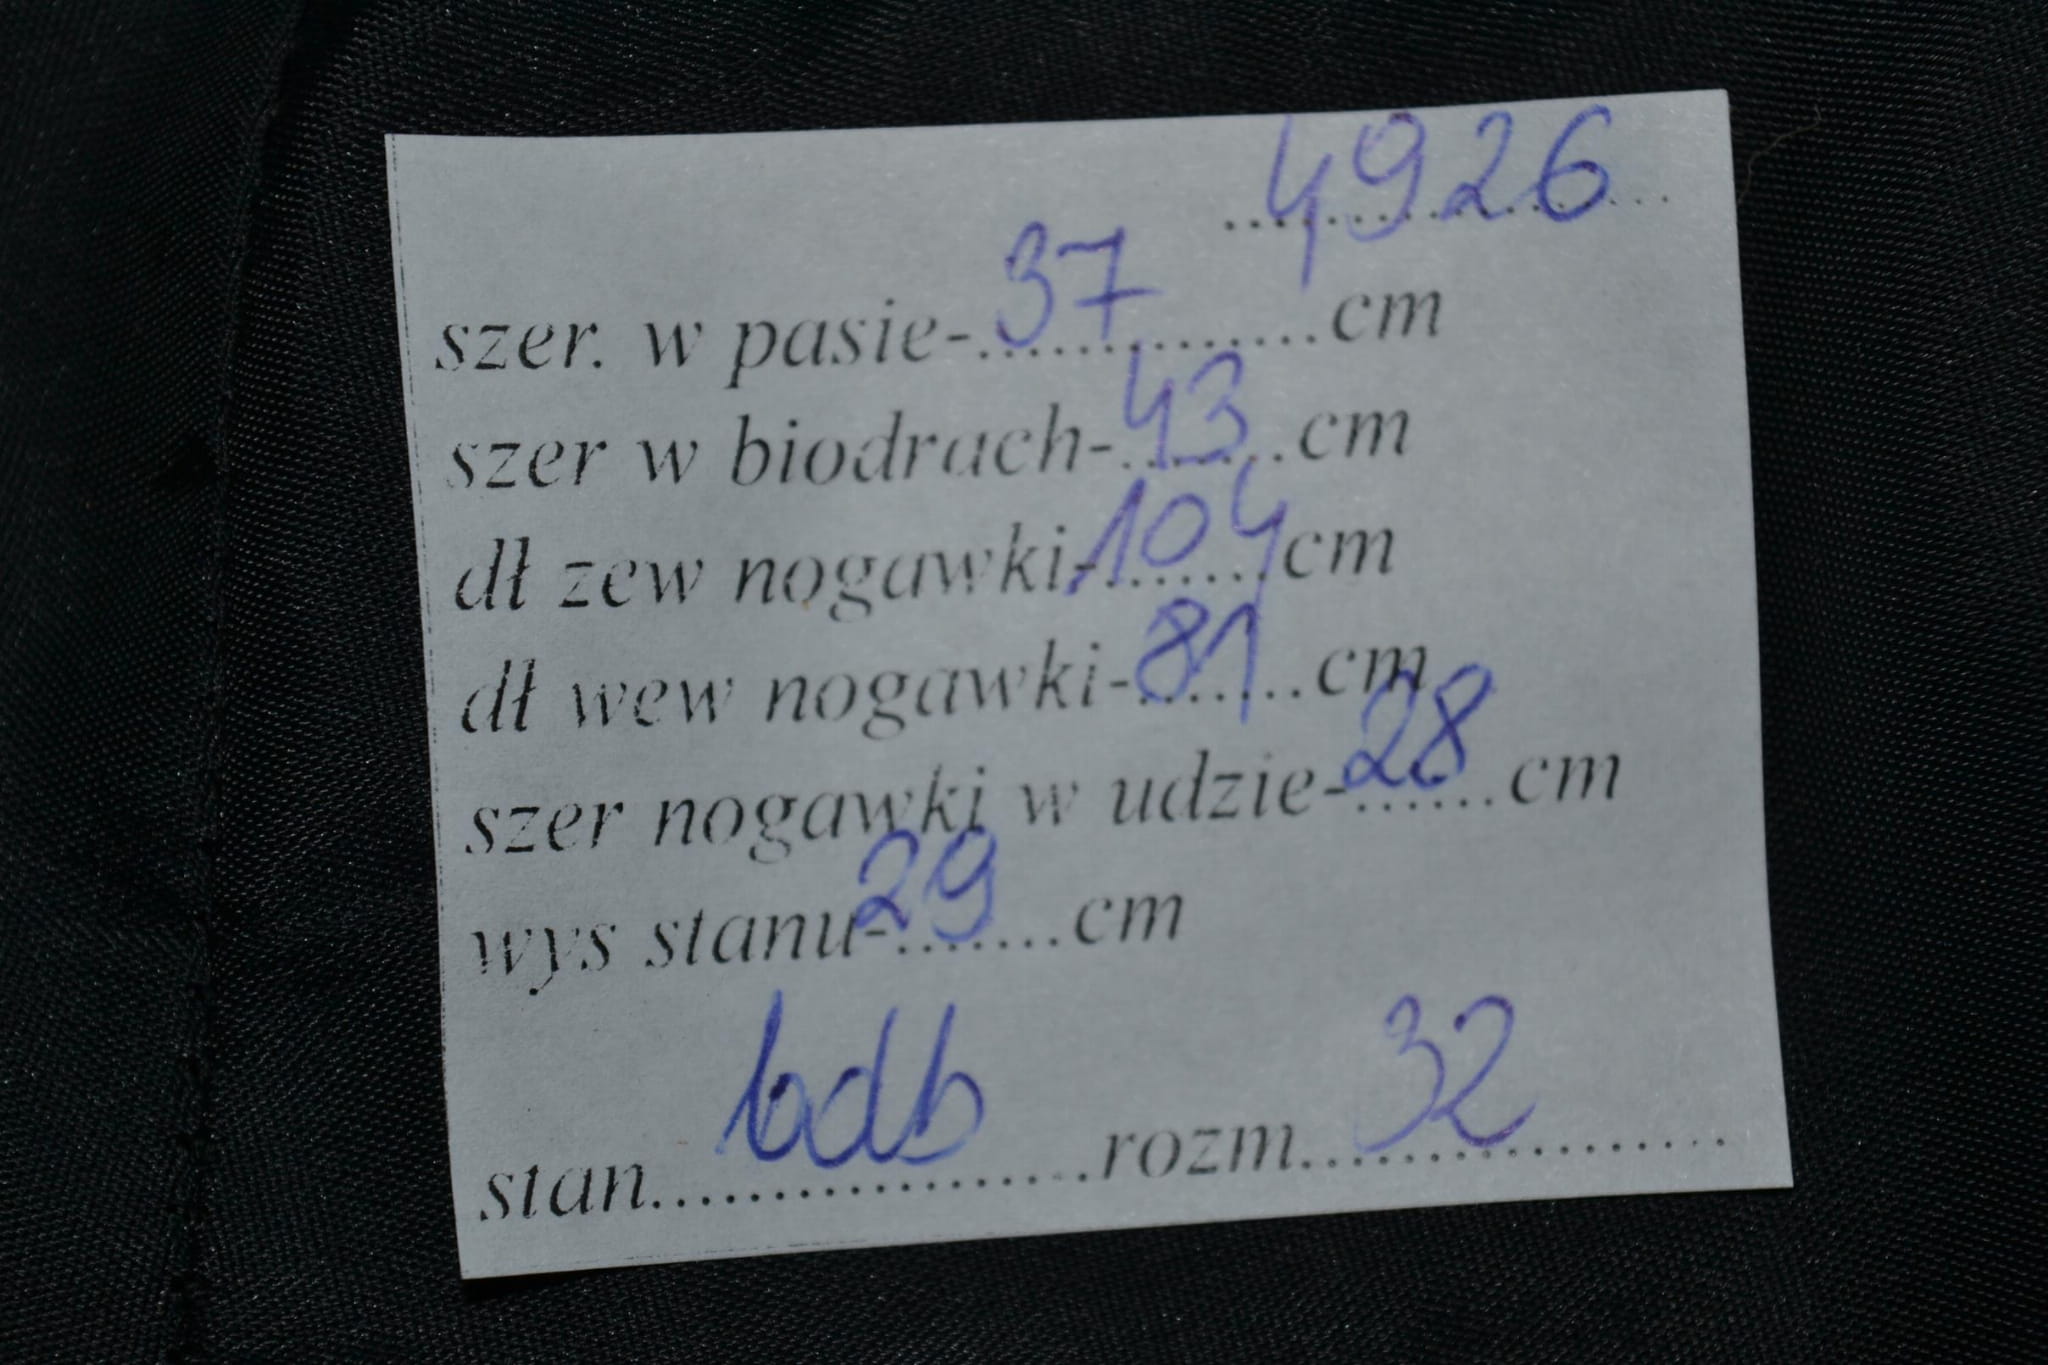 4926
szer. w pasie-37..............cm
szer w biodrach-43.......cm
dł zew nogawki-104.......cm
dł wew nogawki-81.......cm
szer nogawki w udzie-28......cm
wys stanu-29.......cm
stan....bdb....rozm....32....